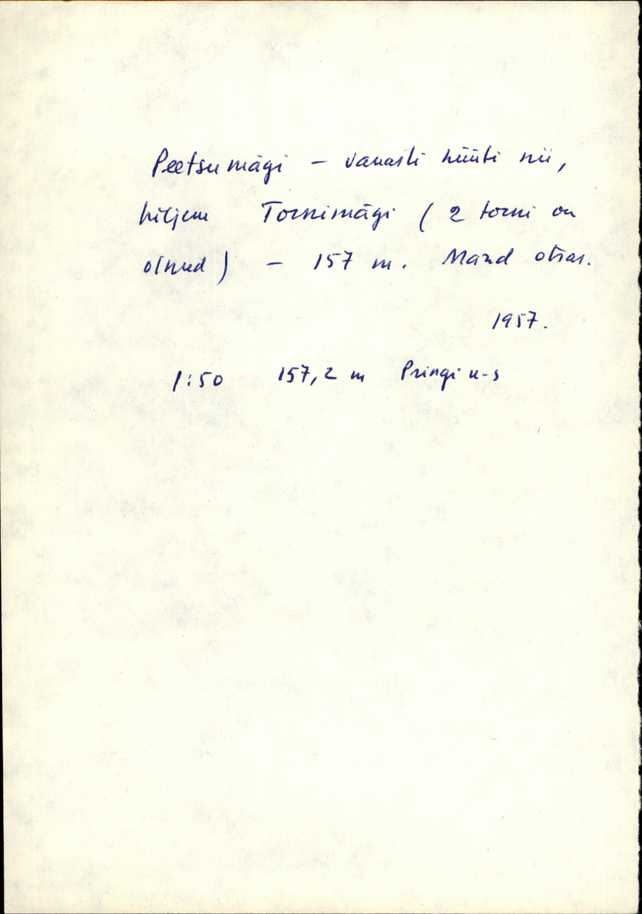 Peetsumägi – vanasti hüüti nii,
hiljem Tornimägi ( 2 torni on
olnud ) – 157 m. Mänd otsas.
1957.
1:50 157,2 m Pringi k-s